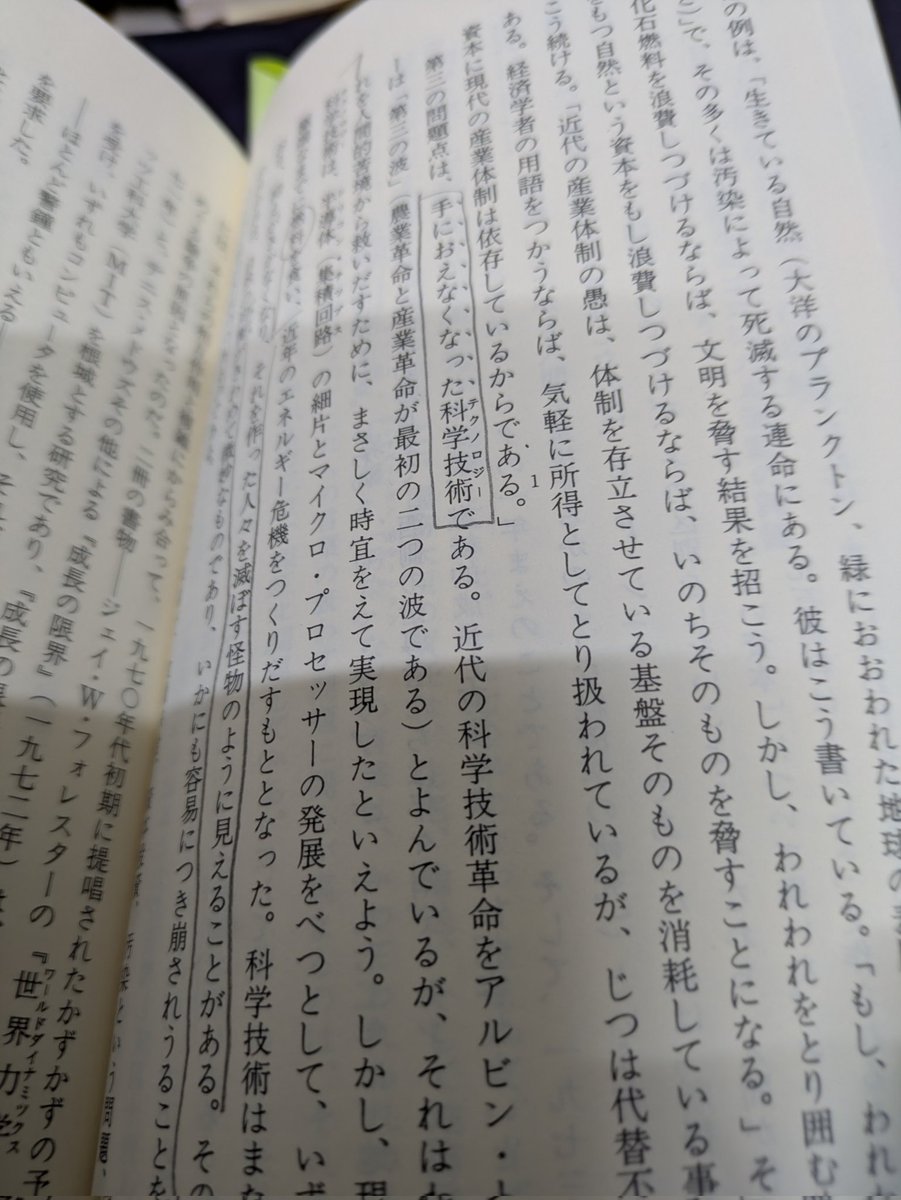 の例は、「生きている自然（大洋のプランクトン、緑におおわれた地球の
」で、その多くは汚染によって死滅する運命にある。彼はこう書いている。「もし、われ
化石燃料を浪費しつづけるならば、文明を脅す結果を招こう。しかし、われわれをとり囲む
をもつ自然という資本をもし浪費しつづけるならば、いのちそのものを脅すことになる。」そ
こう続ける。「近代の産業体制の愚は、体制を存立させている基盤そのものを消耗している事
ある。経済学者の用語をつかうならば、気軽に所得としてとり扱われているが、じつは代替不
資本に現代の産業体制は依存しているからである。」1
第三の問題点は、手におえなくなった科学技術テクノロジーである。近代の科学技術革命をアルビン・ト
ーは「第三の波」（農業革命と産業革命が最初の二つの波である）とよんでいるが、それは
れを人間的苦境から救いだすために、まさしく時宜をえて実現したといえよう。しかし、現
科学技術は、半導体（集積回路）の細片チップスとマイクロ・プロセッサーの発展をべつとして、いず
近年のエネルギー危機をつくりだすもととなった。科学技術はまた
それを作った人々を滅ぼす怪物のように見えることがある。その
いかにも容易につき崩されうることを
汚染という問題、
一九七〇年代初期に提唱されたかずかずの予
二冊の書物――ジェイ・W・フォレスターの『世界力学ワールドダイナミックス
その他による『成長の限界』（一九七二年）
工科大学（MIT）を根城とする研究であり、『成長の
を受け、いずれもコンピュータを使用し、
――ほとんど警鐘ともいえる――
を要求した。